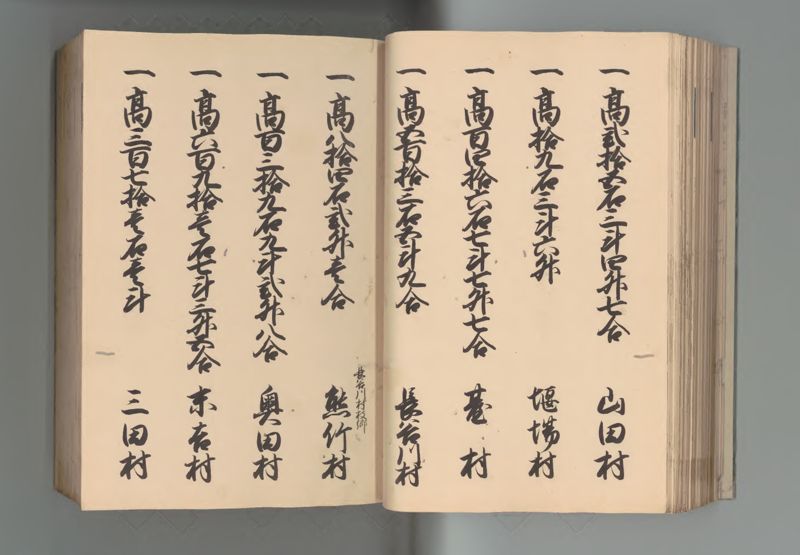 一高弐拾五石三斗四升七合 山田村
一高拾九石三斗六升 堰場村
一高百四拾六石七斗七升七合 臺村
一高五百拾三石五斗九合 長谷川村
長谷川村枝郷
一高八拾四石弐升壱合 熊竹村
一高百三拾九石九斗弐升八合 奥田村
一高六百九拾壱石七斗三升五合 末吉村
一高三百七拾壱石壱斗 三田村